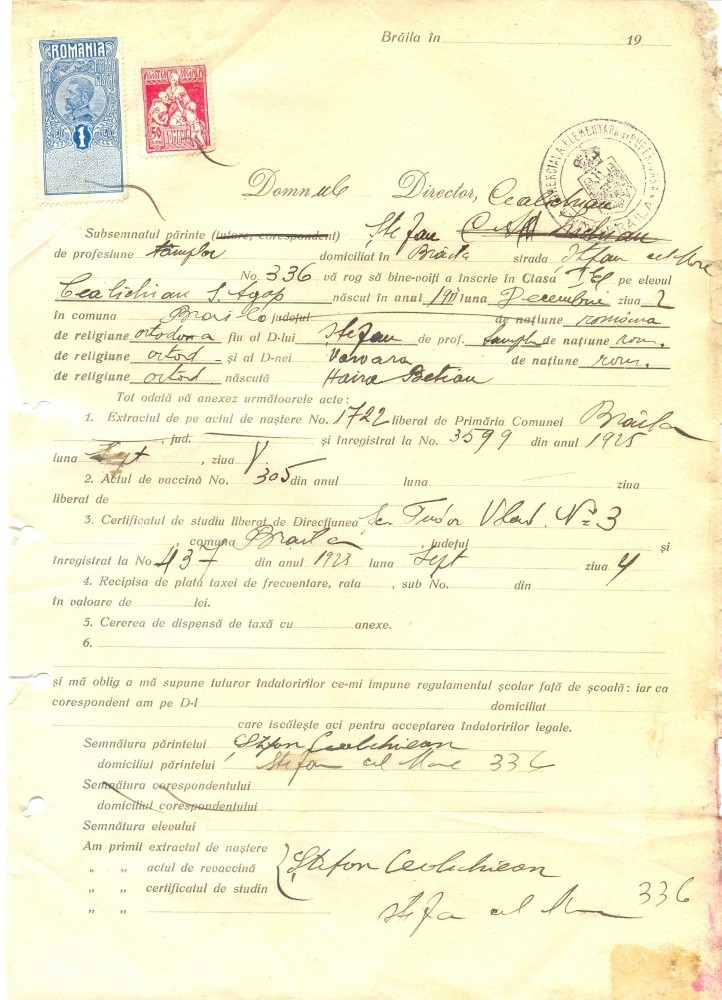 Brăila în 19
ROMANIA
1
ASISTENȚA SOCIALA
50
ROMANIA
Domnule Director,
Cealichian
Subsemnatul părinte (tutore, corespondent) Ștefan
de profesiune tâmplar domiciliat în Brăila strada Ștefan cel Mare
No. 336 vă rog să bine-voiți a înscrie în Clasa I El pe elevul
Cealichian S. Agop născut în anul 1911 luna Decembrie ziua 2
în comuna Braila județul de națiune româna
de religiune ortodoxa fiu al D-lui Ștefan de prof. tamplar de națiune rom.
de religiune ortod și al D-nei Varvara de națiune rom.
de religiune ortod născută
Tot odată vă anexez următoarele acte :
1. Extractul de pe actul de naștere No. 1722 liberat de Primăria Comunei Brăila
, jud. și înregistrat la No. 3599 din anul 1925
luna Sept , ziua
2. Actul de vaccină No. 305 din anul luna ziua
liberat de
3. Certificatul de studiu liberat de Direcțiunea Sc. Tudor Vlad. No 3
, comuna Braila , județul și
înregistrat la No 437 din anul 1923 luna Sept ziua 4
4. Recipisa de plată taxei de frecventare, rata , sub No. din
în valoare de lei.
5. Cererea de dispensă de taxă cu anexe.
6.
și mă oblig a mă supune tuturor îndatoririlor ce-mi impune regulamentul școlar față de școală : iar ca
corespondent am pe D-l domiciliat
care iscălește aci pentru acceptarea îndatoririlor legale.
Semnătura părintelui Ștefan Cealichian
domiciliul părintelui Ștefan cel Mare 336
Semnătura corespondentului
domiciliul corespondentului
Semnătura elevului
Am primit extractul de naștere
„ „ actul de revaccină Ștefan Cealichian
„ „ certificatul de studin
„ „ Ștefan cel Mare 336